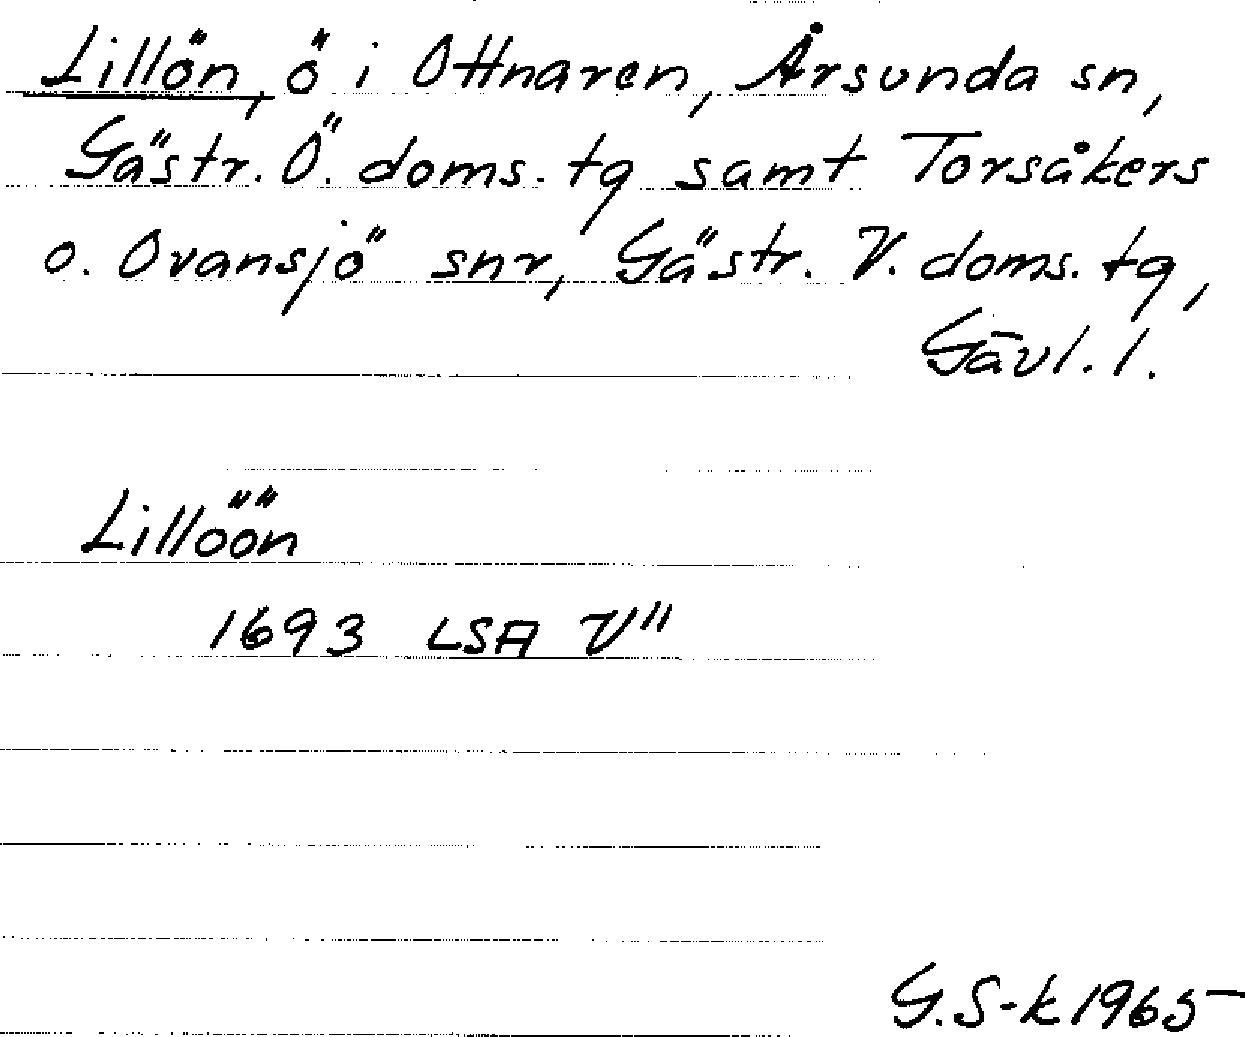 Lillön, ö i Ottnaren, Årsunda sn,
Gästr. Ö. doms. tg samt Torsåkers
o. Ovansjö snr, Gästr. V. doms. tg,
Gävl. l.
Lillöön
1693 LSA V"
G.S-k 1965